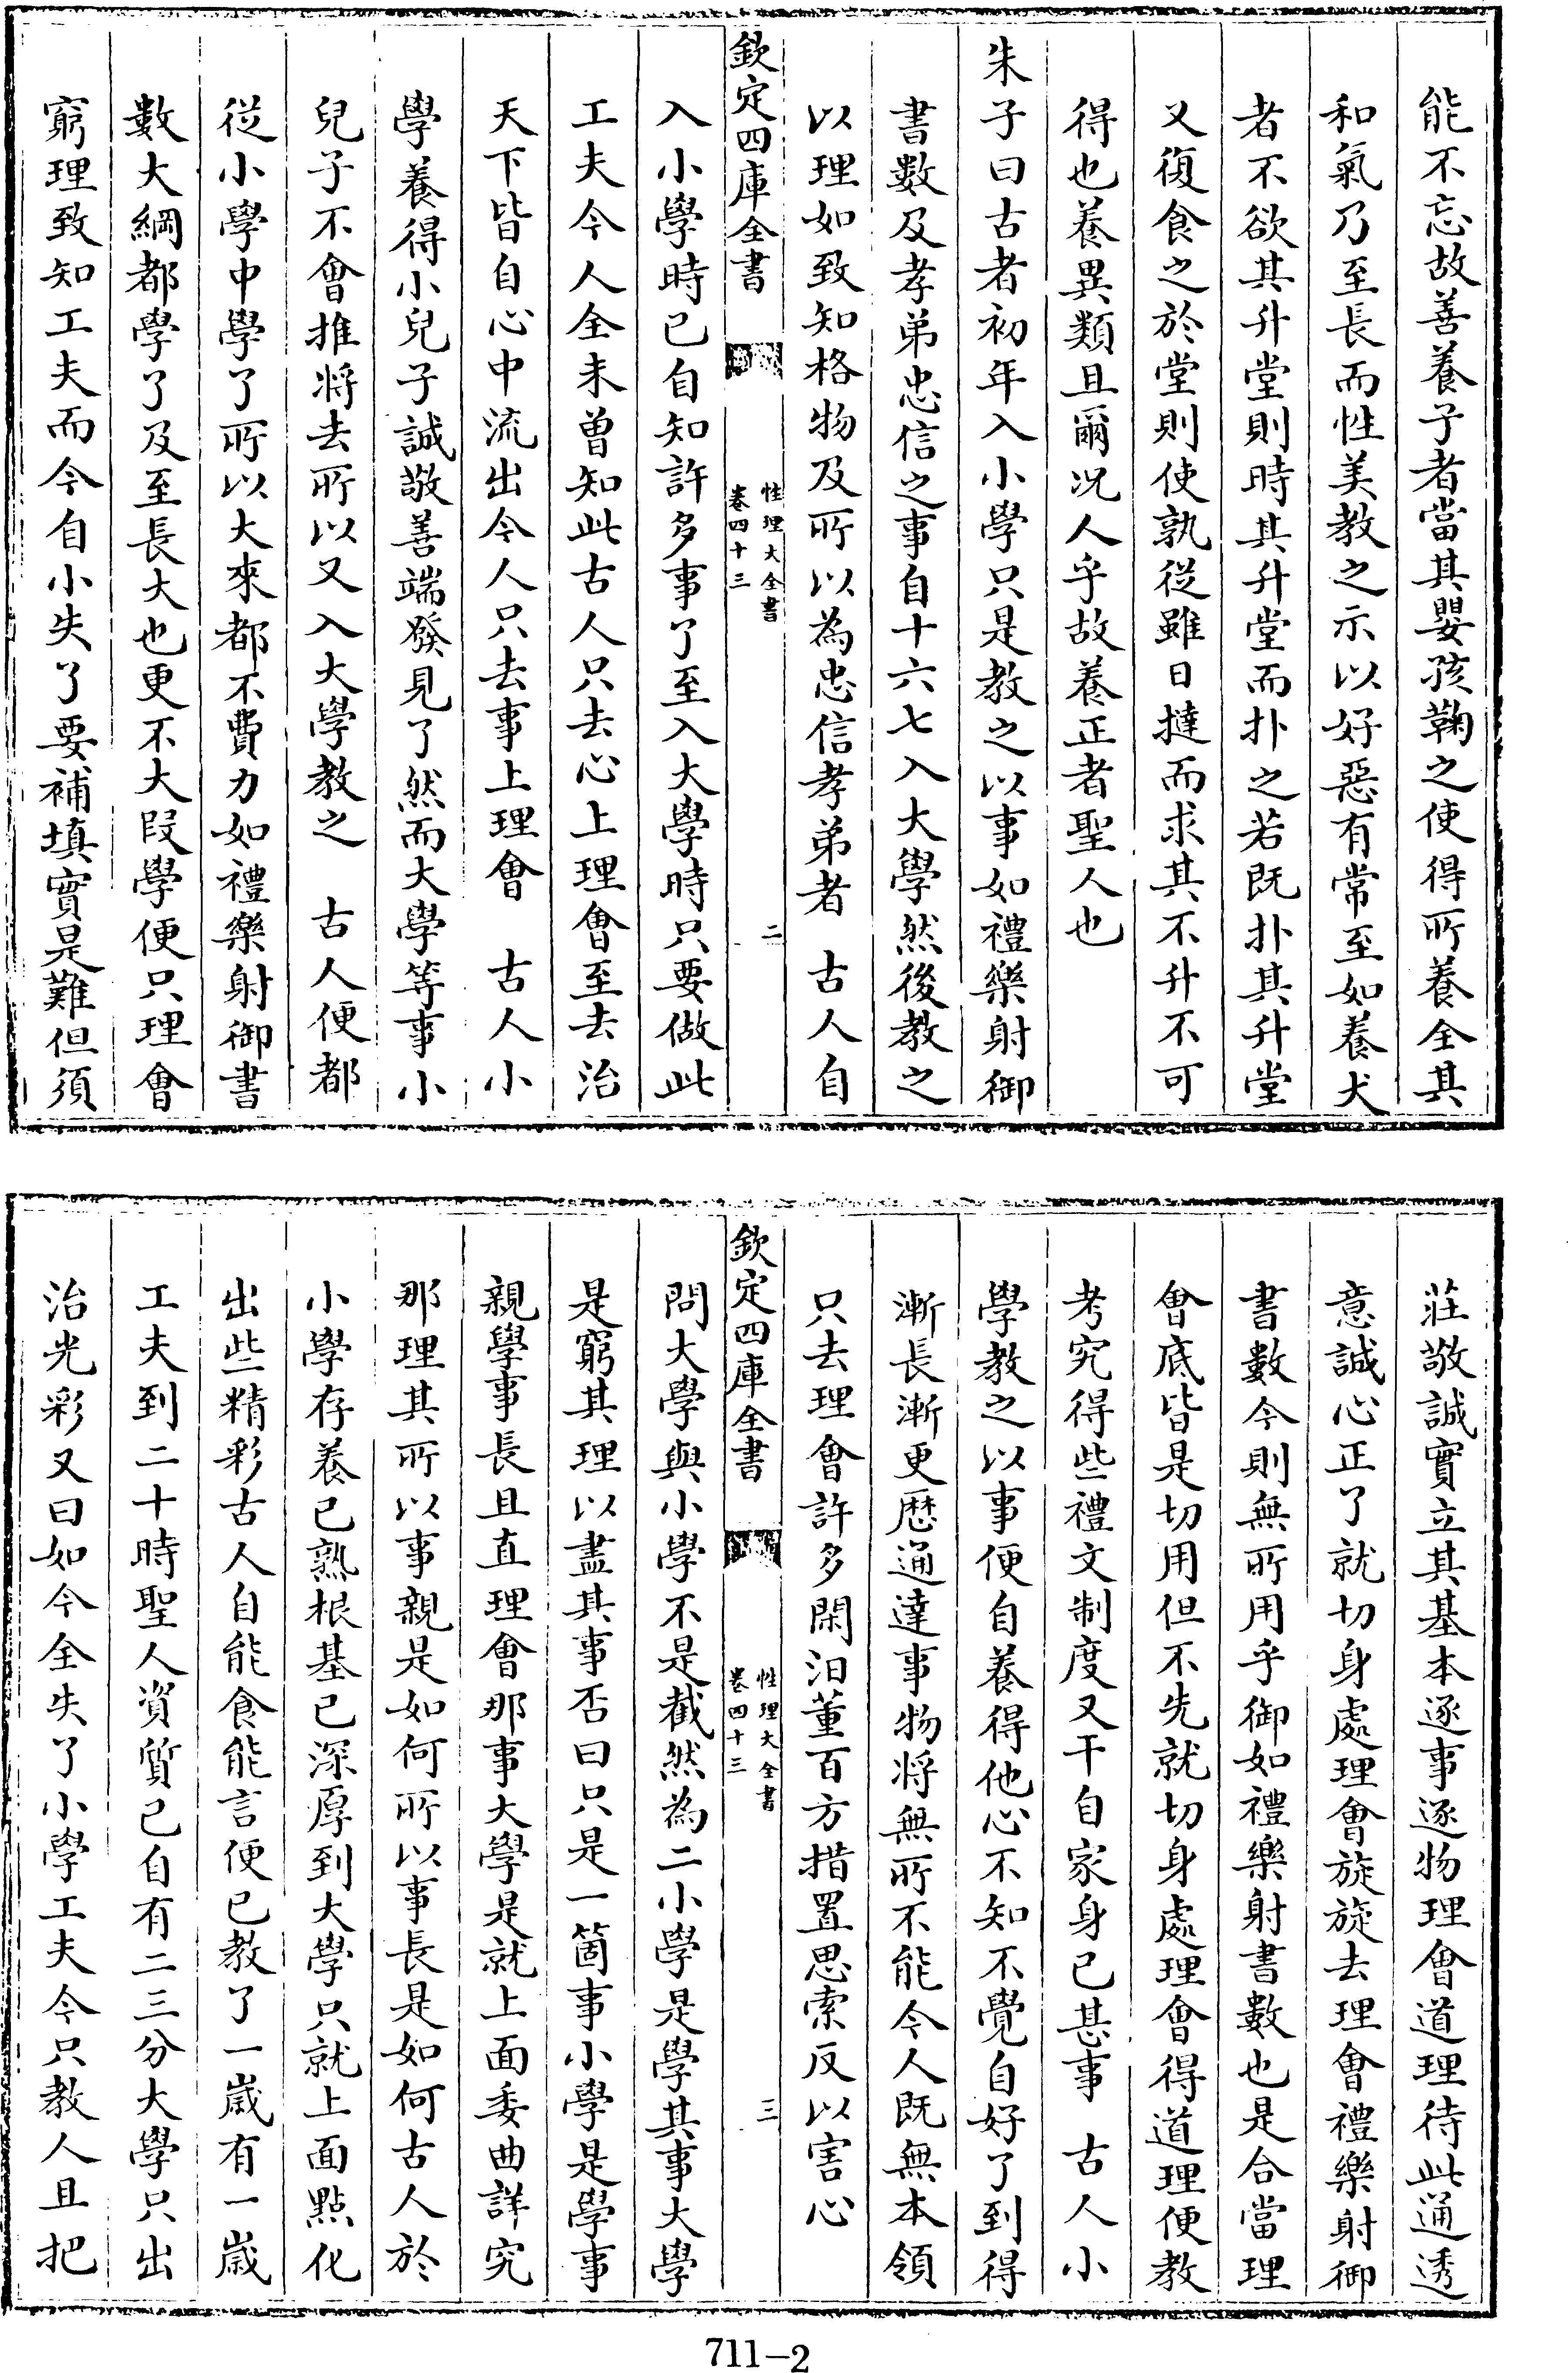 能不忘故善養子者當其嬰孩鞠之使得所養全其
和氣乃至長而性美教之示以好惡有常至如養犬
者不欲其升堂則時其升堂而扑之若既扑其升堂
又復食之於堂則使孰從雖日撻而求其不升不可
得也養異類且爾况人乎故養正者聖人也
朱子曰古者初年入小學只是教之以事如禮樂射御
書數及孝弟忠信之事自十六七入大學然後教之
以理如致知格物及所以為忠信孝弟者　古人自
欽定四庫全書
性理大全書
卷四十三
二
入小學時已自知許多事了至入大學時只要做此
工夫今人全未曾知此古人只去心上理會至去治
天下皆自心中流出今人只去事上理會　古人小
學養得小兒子誠敬善端發見了然而大學等事小
兒子不會推將去所以又入大學教之　古人便都
從小學中學了所以大來都不費力如禮樂射御書
數大綱都學了及至長大也更不大段學便只理會
窮理致知工夫而今自小失了要補填實是難但須
莊敬誠實立其基本逐事逐物理會道理待此通透
意誠心正了就切身處理會旋旋去理會禮樂射御
書數今則無所用乎御如禮樂射書數也是合當理
會底皆是切用但不先就切身處理會得道理便教
考究得些禮文制度又干自家身已甚事　古人小
學教之以事便自養得他心不知不覺自好了到得
漸長漸更歷通達事物將無所不能今人既無本領
只去理會許多閑汩董百方措置思索反以害心
欽定四庫全書
性理大全書
卷四十三
三
問大學與小學不是截然為二小學是學其事大學
是窮其理以盡其事否曰只是一箇事小學是學事
親學事長且直理會那事大學是就上面委曲詳究
那理其所以事親是如何所以事長是如何古人於
小學存養已熟根基已深厚到大學只就上面點化
出些精彩古人自能食能言便已教了一歲有一歲
工夫到二十時聖人資質已自有二三分大學只出
治光彩又曰如今全失了小學工夫今只教人且把
711-2